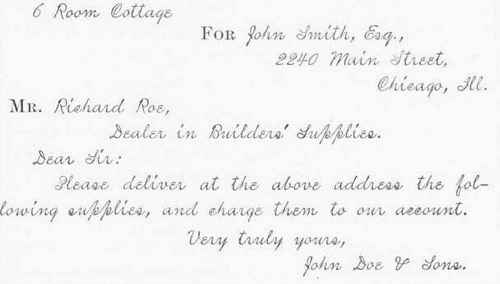 6 Room Cottage
FOR John Smith, Esq.,
2240 Main Street,
Chicago, Ill.
MR. Richard Roe,
Dealer in Builders' Supplies.
Dear Sir:
Please deliver at the above address the fol-
lowing supplies, and charge them to our account.
Very truly yours,
John Doe & Sons.